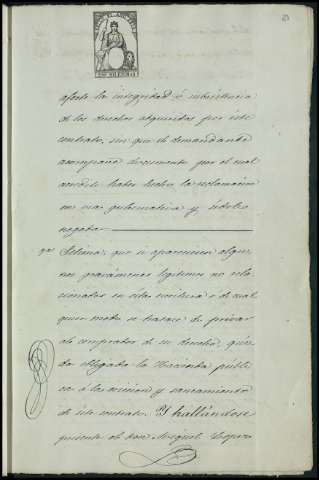 afecte la integridad ó subsistencia
de los derechos adquiridos por este
contrato, sin que el demandante
acompañe documento por el cual
acredite haber hecho la reclamacion
en via gubernativa y, sídole
negada
7ª Sétima, que si aparecieren algu-
nos gravámenes legítimos no rela-
cionados en ésta escritura ó de cual
quier modo se tratare de privar
al comprador de su derecho, que-
da obligada la Hacienda públi-
ca á la eviccion y saneamiento
de éste contrato. Y hallándose
presente el don Miguel Lopera